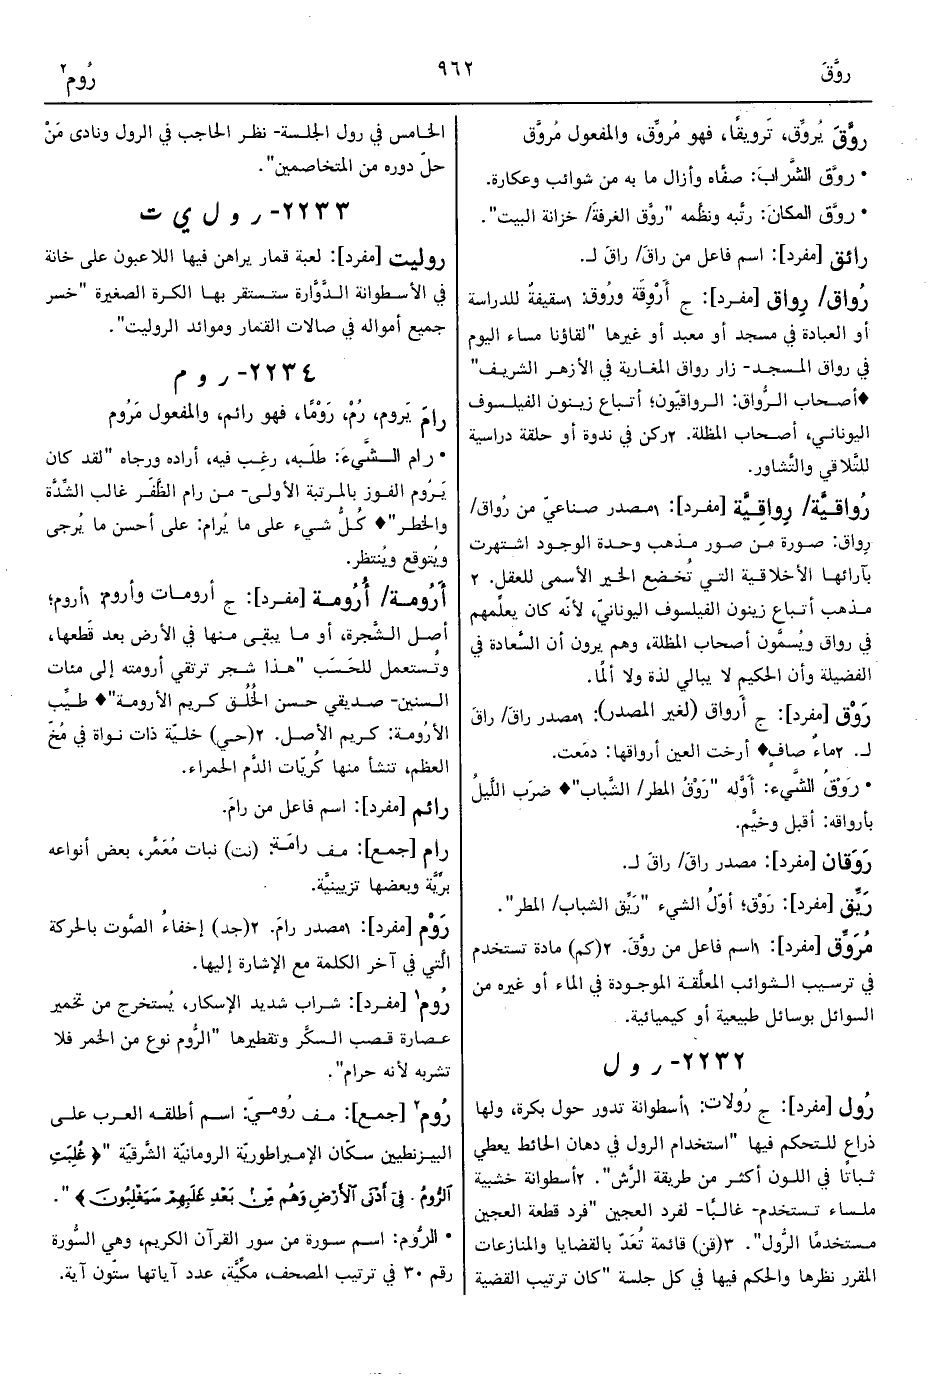 روَّقَ
٩٦٢
رُوم٢
روَّقَ يُروِّق، تَرويقًا، فهو مُروِّق، والمفعول مُروَّق
• روَّق الشَّرابَ: صفَّاه وأزال ما به من شوائب وعكارة.
• روَّق المكانَ: رتَّبه ونظَّمه "روَّق الغرفةَ/ خزانة البيت".
رائق [مفرد]: اسم فاعل من راقَ/ راقَ لـ.
رُواق/ رِواق [مفرد]: ج أَرْوِقَة ورُوق: ١سقيفةٌ للدراسة
أو العبادة في مسجد أو معبد أو غيرها "لقاؤنا مساء اليوم
في رواق المسجد- زار رواق المغاربة في الأزهر الشريف"
♦أصحاب الرُّواق: الرواقيّون؛ أتباع زينون الفيلسوف
اليوناني، أصحاب المظلة. ٢ركن في ندوة أو حلقة دراسية
للتَّلاقي والتَّشاور.
رُواقيَّة/ رِواقِيَّة [مفرد]: ١مصدر صناعيّ من رُواق/
رِواق: صورة من صور مذهب وحدة الوجود اشتهرت
بآرائها الأخلاقية التي تُخضع الخير الأسمى للعقل. ٢
مذهب أتباع زينون الفيلسوف اليونانيّ، لأنَّه كان يعلِّمهم
في رواق ويُسمَّون أصحاب المظلة، وهم يرون أن السَّعادة في
الفضيلة وأن الحكيم لا يبالي لذة ولا ألمًا.
رَوْق [مفرد]: ج أرواق (لغير المصدر): ١مصدر راقَ/ راقَ
لـ. ٢ماءٌ صافٍ♦ أرخت العين أرواقها: دمَعت.
• رَوْقُ الشَّيء: أوَّله "رَوْقُ المطر/ الشَّباب"♦ ضرَب اللَّيلُ
بأرواقه: أقبل وخيَّم.
رَوَقان [مفرد]: مصدر راقَ/ راقَ لـ.
رَيِّق [مفرد]: رَوْق؛ أوّلُ الشيء "رَيِّق الشباب/ المطر".
مُرَوِّق [مفرد]: ١اسم فاعل من روَّقَ. ٢(كم) مادة تستخدم
في ترسيب الشوائب المعلَّقة الموجودة في الماء أو غيره من
السوائل بوسائل طبيعية أو كيميائية.
٢٢٣٢- ر و ل
رُول [مفرد]: ج رُولات: ١أسطوانة تدور حول بكرة، ولها
ذراع للتحكم فيها "استخدام الرول في دهان الحائط يعطي
ثباتًا في اللون أكثر من طريقة الرَّش". ٢أسطوانة خشبية
ملساء تستخدم- غالبًا- لفرد العجين "فرد قطعة العجين
مستخدمًا الرُّول". ٣(قن) قائمة تُعَدّ بالقضايا والمنازعات
المقرر نظرها والحكم فيها في كل جلسة "كان ترتيب القضية
الخامس في رول الجلسة- نظر الحاجب في الرول ونادى مَنْ
حلّ دوره من المتخاصمين".
٢٢٣٣- ر و ل ي ت
روليت [مفرد]: لعبة قمار يراهن فيها اللاعبون على خانة
في الأسطوانة الدَّوَّارة ستستقر بها الكرة الصغيرة "خسر
جميع أمواله في صالات القمار وموائد الروليت".
٢٢٣٤- ر و م
رامَ يَروم، رُمْ، رَوْمًا، فهو رائم، والمفعول مَرُوم
• رام الشَّيءَ: طلَبه، رغِب فيه، أراده ورجاه "لقد كان
يَرُوم الفوز بالمرتبة الأولى- من رام الظَّفَر غالب الشِّدَّة
والخطر"♦ كُلُّ شيء على ما يُرام: على أحسن ما يُرجى
ويُتوقع ويُنتظر.
أَرُومة/ أُرُومة [مفرد]: ج أرومات وأروم: ١أروم؛
أصل الشَّجرة، أو ما يبقى منها في الأرض بعد قَطعها،
وتُستعمل للحَسَب "هذا شجر ترتقي أرومته إلى مئات
السنين- صديقي حسن الخُلُق كريم الأرومة"♦ طيِّب
الأرُومة: كريم الأصل. ٢(حي) خليّة ذات نواة في مُخّ
العظم، تنشأ منها كُريّات الدَّم الحمراء.
رائم [مفرد]: اسم فاعل من رامَ.
رام [جمع]: مف رامَة: (نت) نبات مُعَمَّر، بعض أنواعه
برِّيَّة وبعضها تزيينيَّة.
رَوْم [مفرد]: ١مصدر رامَ. ٢(جد) إخفاءُ الصَّوت بالحركة
الَّتي في آخر الكلمة مع الإشارة إليها.
رُوم١ [مفرد]: شراب شديد الإسكار، يُستخرج من تخمير
عصارة قصب السكَّر وتقطيرها "الرُّوم نوع من الخمر فلا
تشربه لأنه حرام".
رُوم٢ [جمع]: مف رُوميّ: اسم أطلقه العرب على
البيزنطيين سكّان الإمبراطوريّة الرومانيّة الشَّرقيّة "﴿ غُلِبَتِ
الرُّومُ. فِي أَدْنَى الأَرْضِ وَهُم مِّنْ بَعْدِ غَلَبِهِمْ سَيَغْلِبُونَ ﴾".
• الرُّوم: اسم سورة من سور القرآن الكريم، وهي السُّورة
رقم ٣٠ في ترتيب المصحف، مكِّيَّة، عدد آياتها ستّون آية.